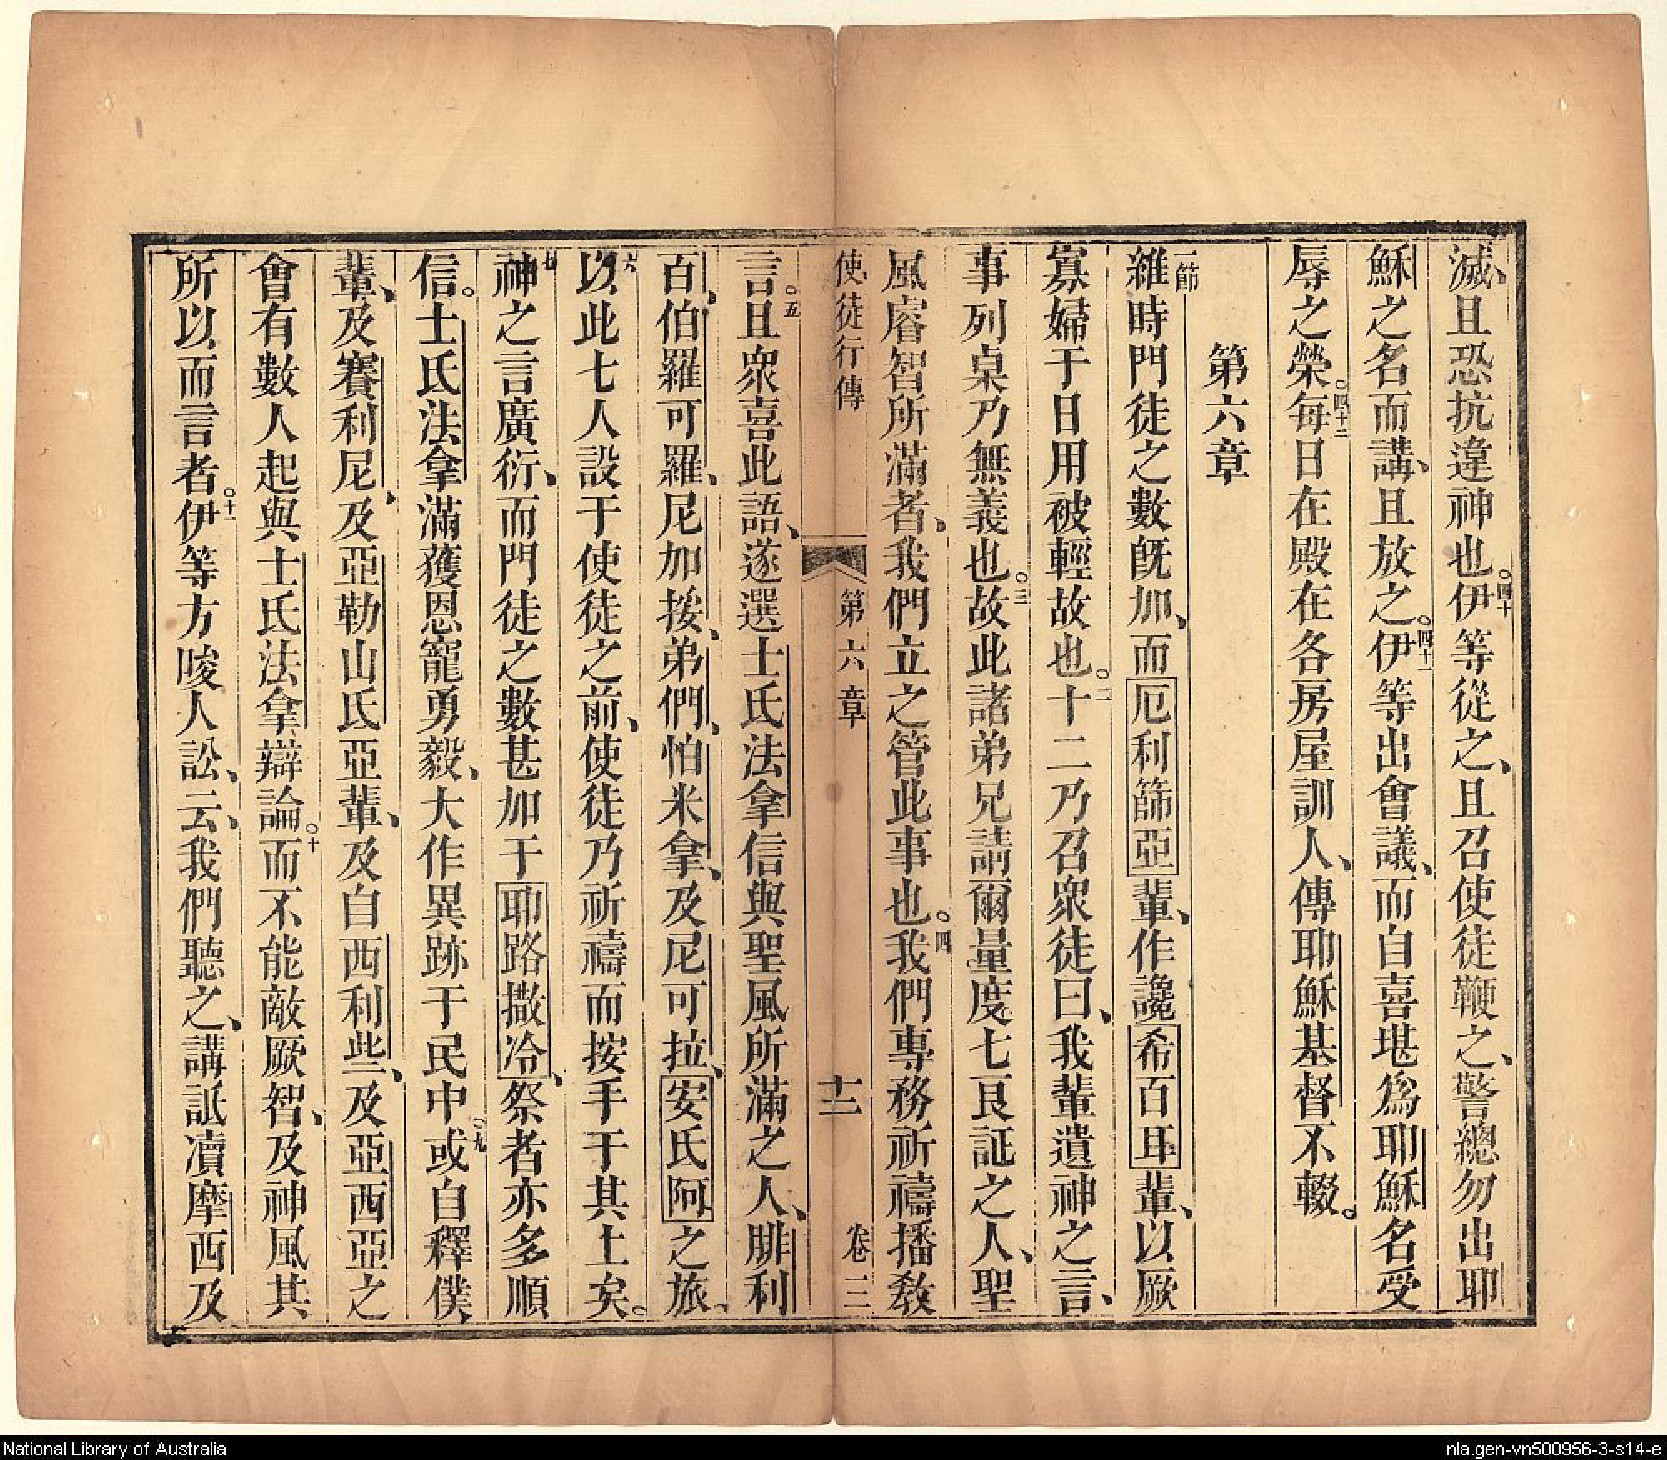 滅、且恐抗違神也。四十伊等從之、且召使徒鞭之、警總勿出耶
穌之名而講、且放之。四十一伊等出會議、而自喜堪爲耶穌名受
辱之榮。四十二每日在殿在各房屋訓人、傳耶穌基督不輟。
第六章
一節維時門徒之數旣加、而厄利篩亞輩、作讒希百耳輩、以厥
寡婦于日用被輕故也。二十二乃召衆徒曰、我輩遺神之言、
事列桌乃無義也。三故此諸弟兄請爾量度七良証之人、聖
風睿智所滿者、我們立之管此事也。四我們專務祈禱播敎
使徒行傳 第六章 十二 卷三
言。五且衆喜此語、遂選士氏法拿信與聖風所滿之人、腓利
百、伯羅可羅、尼加挨、弟們、怕米拿、及尼可拉、安氏阿之旅。
六以此七人設于使徒之前、使徒乃祈禱而按手于其上矣。
七神之言廣衍、而門徒之數甚加于耶路撒冷、祭者亦多順
信。士氏法拿滿獲恩寵勇毅、大作異跡于民中。九或自釋僕
輩、及賽利尼、及亞勒山氐亞輩、及自西利些、及亞西亞之
會有數人起與士氏法拿辯論。十而不能敵厥智、及神風其
所以而言者。十一伊等方唆人訟、云、我們聽之、講詆凟摩西及
National Library of Australia
nla.gen-vn500956-3-s14-e